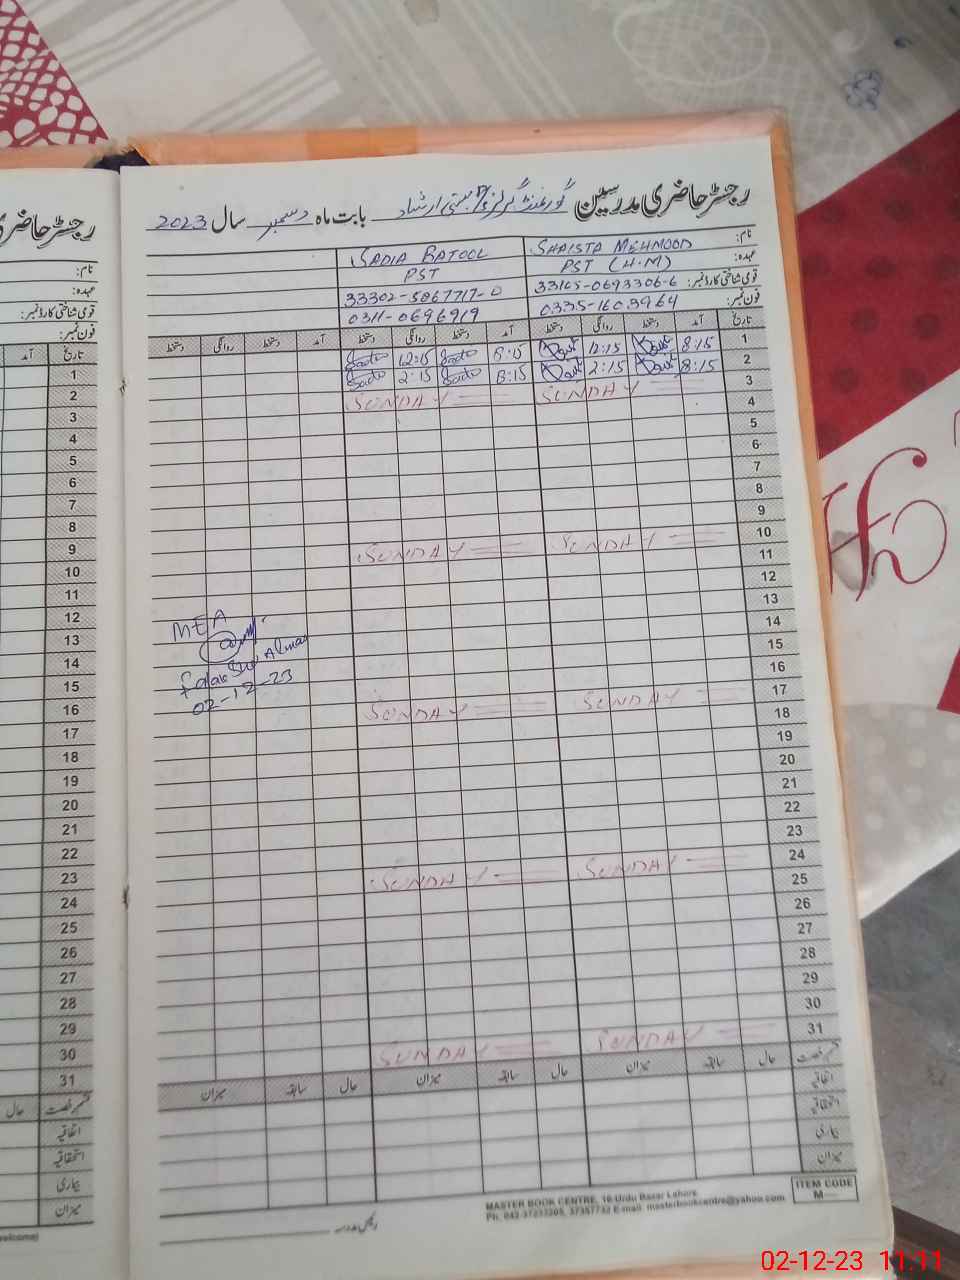 رجسٹر حاضری مدرسین گورنمنٹ گرلز بستی ارشاد بابت ماہ دسمبر سال 2023
نام: SHAISTA MEHMOOD SADIA BATOOL
عہدہ: PST (H.M) PST
قومی شناختی کارڈ نمبر: 33105-0693306-6 33302-5867717-0
فون نمبر: 0335-1603964 0311-0696919
تاریخ آمد دستخط روانگی دستخط آمد دستخط روانگی دستخط آمد دستخط روانگی دستخط
1 8:15 12:15 8:15 12:15
2 8:15 2:15 8:15 2:15
3 SUNDAY SUNDAY
4
5
6
7
8
9
10 SUNDAY SUNDAY
11
12
13
14
15
16
17 SUNDAY SUNDAY
18
19
20
21
22
23
24 SUNDAY SUNDAY
25
26
27
28
29
30
31 SUNDAY SUNDAY
MEA
02-12-23
قسم رخصت حال سابقہ میزان حال سابقہ میزان حال سابقہ میزان
اتفاقیہ
استحقاقیہ
بیماری
میزان
رئیس مدرسہ
MASTER BOOK CENTRE, 16-Urdu Bazar Lahore
Ph. 042-37237205, 37357732 E-mail masterbookcentre@yahoo.com
ITEM CODE
M
رجسٹر حاضری
نام:
عہدہ:
قومی شناختی کارڈ نمبر:
فون نمبر:
تاریخ آمد
1
2
3
4
5
6
7
8
9
10
11
12
13
14
15
16
17
18
19
20
21
22
23
24
25
26
27
28
29
30
31
قسم رخصت حال
اتفاقیہ
استحقاقیہ
بیماری
میزان
02-12-23 11:11